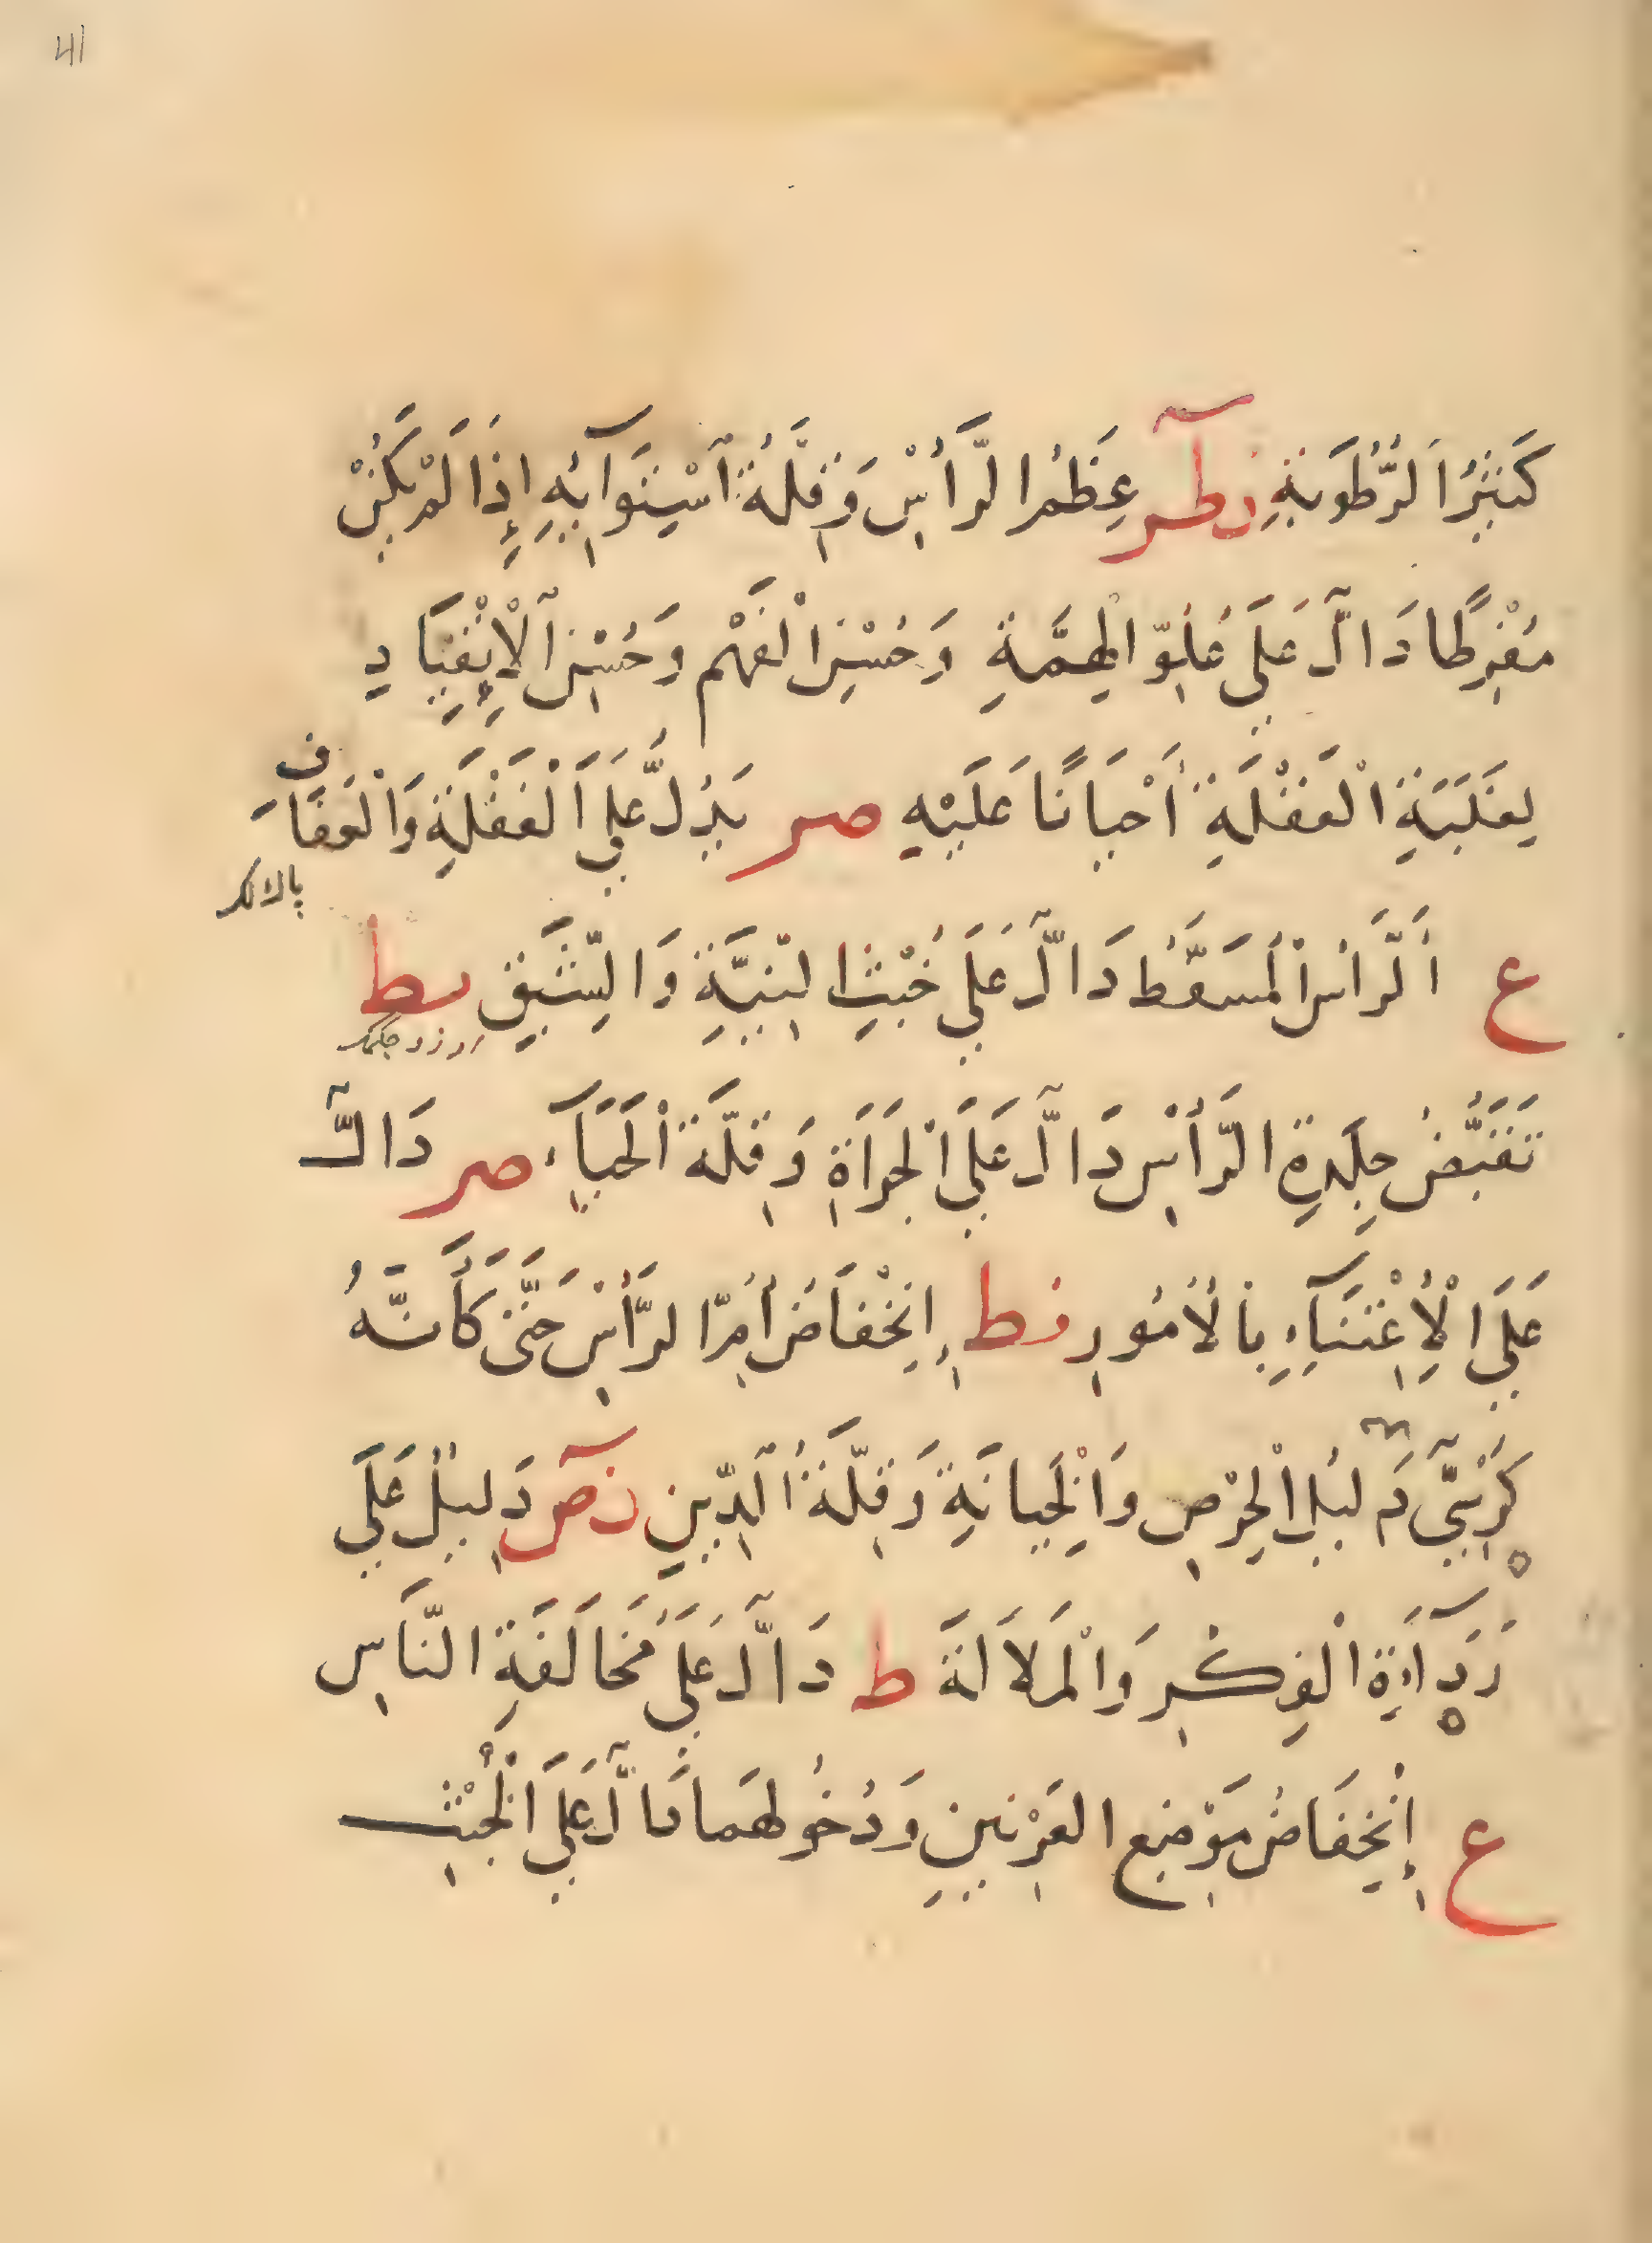 41
كَثِيْرُ الرُّطُوبَةِ نطر عِظَمُ الرَّأْسِ وَقِلَّةُ اسْتِوَآئِهِ إِذَا لَمْ يَكُنْ
مُفْرِطًا دَالٌّ عَلَى عُلُوِّ الْهِمَّةِ وَحُسْنِ الْفَهْمِ وَحُسْنِ الْاِنْقِيَادِ
لِغَلَبَةِ الْغَفْلَةِ أَحْيَانًا عَلَيْهِ صر يَدُلُّ عَلَى الْغَفْلَةِ وَالْعَفَافِ
ع اَلرَّأْسُ الْمُسَفَّطُ دَالٌّ عَلَى خُبْثِ النِّيَّةِ وَالشَّبَقِ سط
تَقَبُّضُ جِلْدَةِ الرَّأْسِ دَالٌّ عَلَى الْجَرَاَةِ وَقِلَّةِ الْحَيَآءِ صر دَالٌّ
عَلَى الْاِعْتِنَآءِ بِالْأُمُورِ فط اِنْخِفَاضُ أُمِّ الرَّأْسِ حَتَّى كَأَنَّهُ
كُرْسِيٌّ دَلِيلُ الْحِرْصِ وَالْخِيَانَةِ وَقِلَّةُ الدِّينِ ن ص دَلِيلٌ عَلَى
رَدَآءَةِ الْفِكْرِ وَالْمَلَالَةَ ط دَالٌّ عَلَى مُخَالَفَةِ النَّاسِ
ع اِنْخِفَاضُ مَوْضِعِ الْقَرْنَيْنِ وَدُخُولُهُمَا دَالٌّ عَلَى الْخُبْثِ